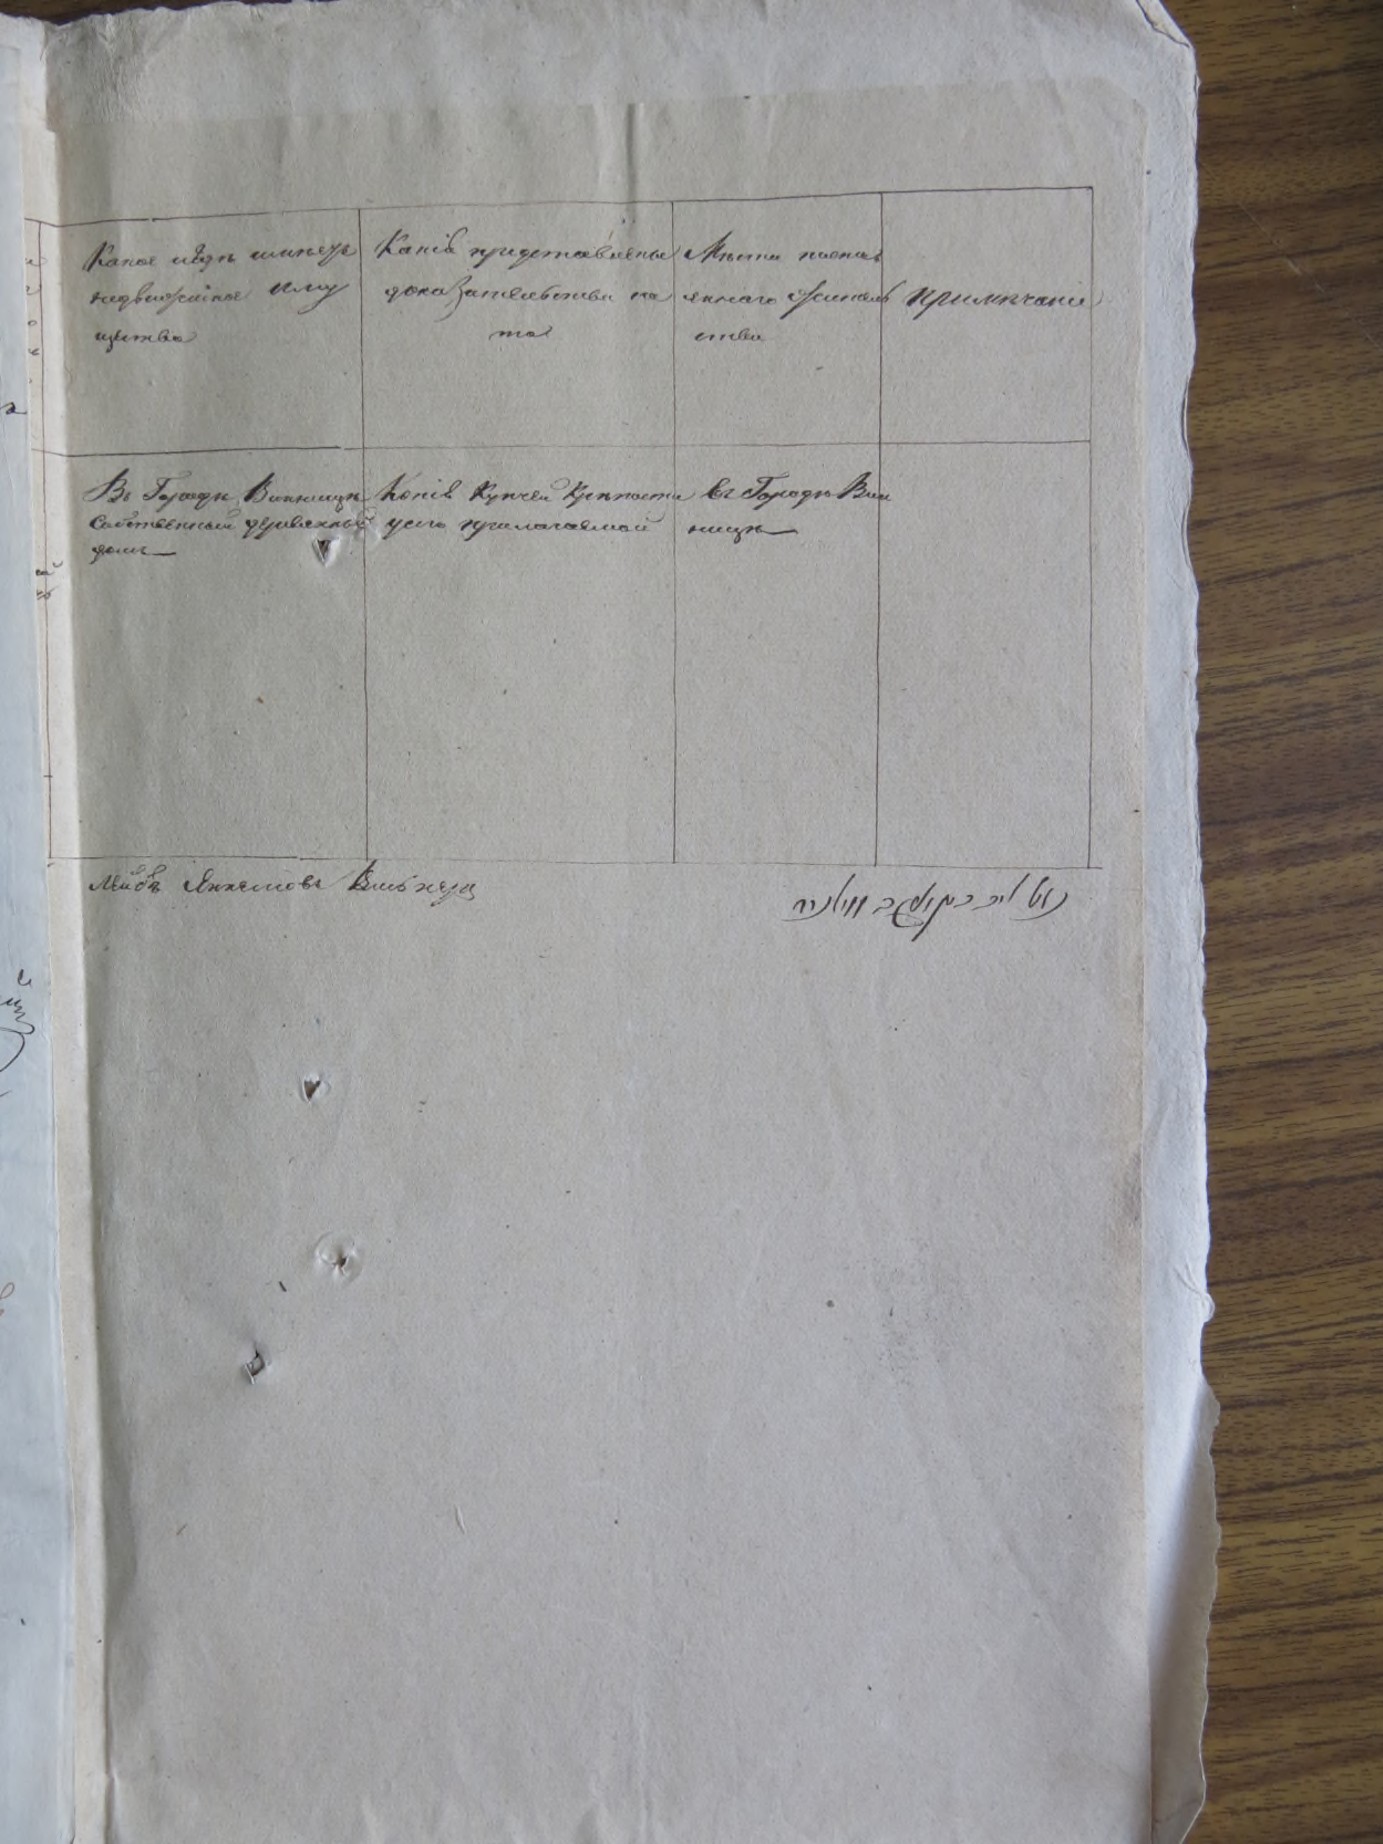 Какое и где имеетъ
недвижимое иму
щество
Какія представлены
доказательства на
то
Место постоя
ннаго жытель
ства
Примѣчаніе
Въ Городѣ Винницѣ
собственный деревянный
домъ
Копія Купчей Крепости
усего прилагаемой
въ Городѣ Вин
ницѣ
Лейбъ Янкелювъ